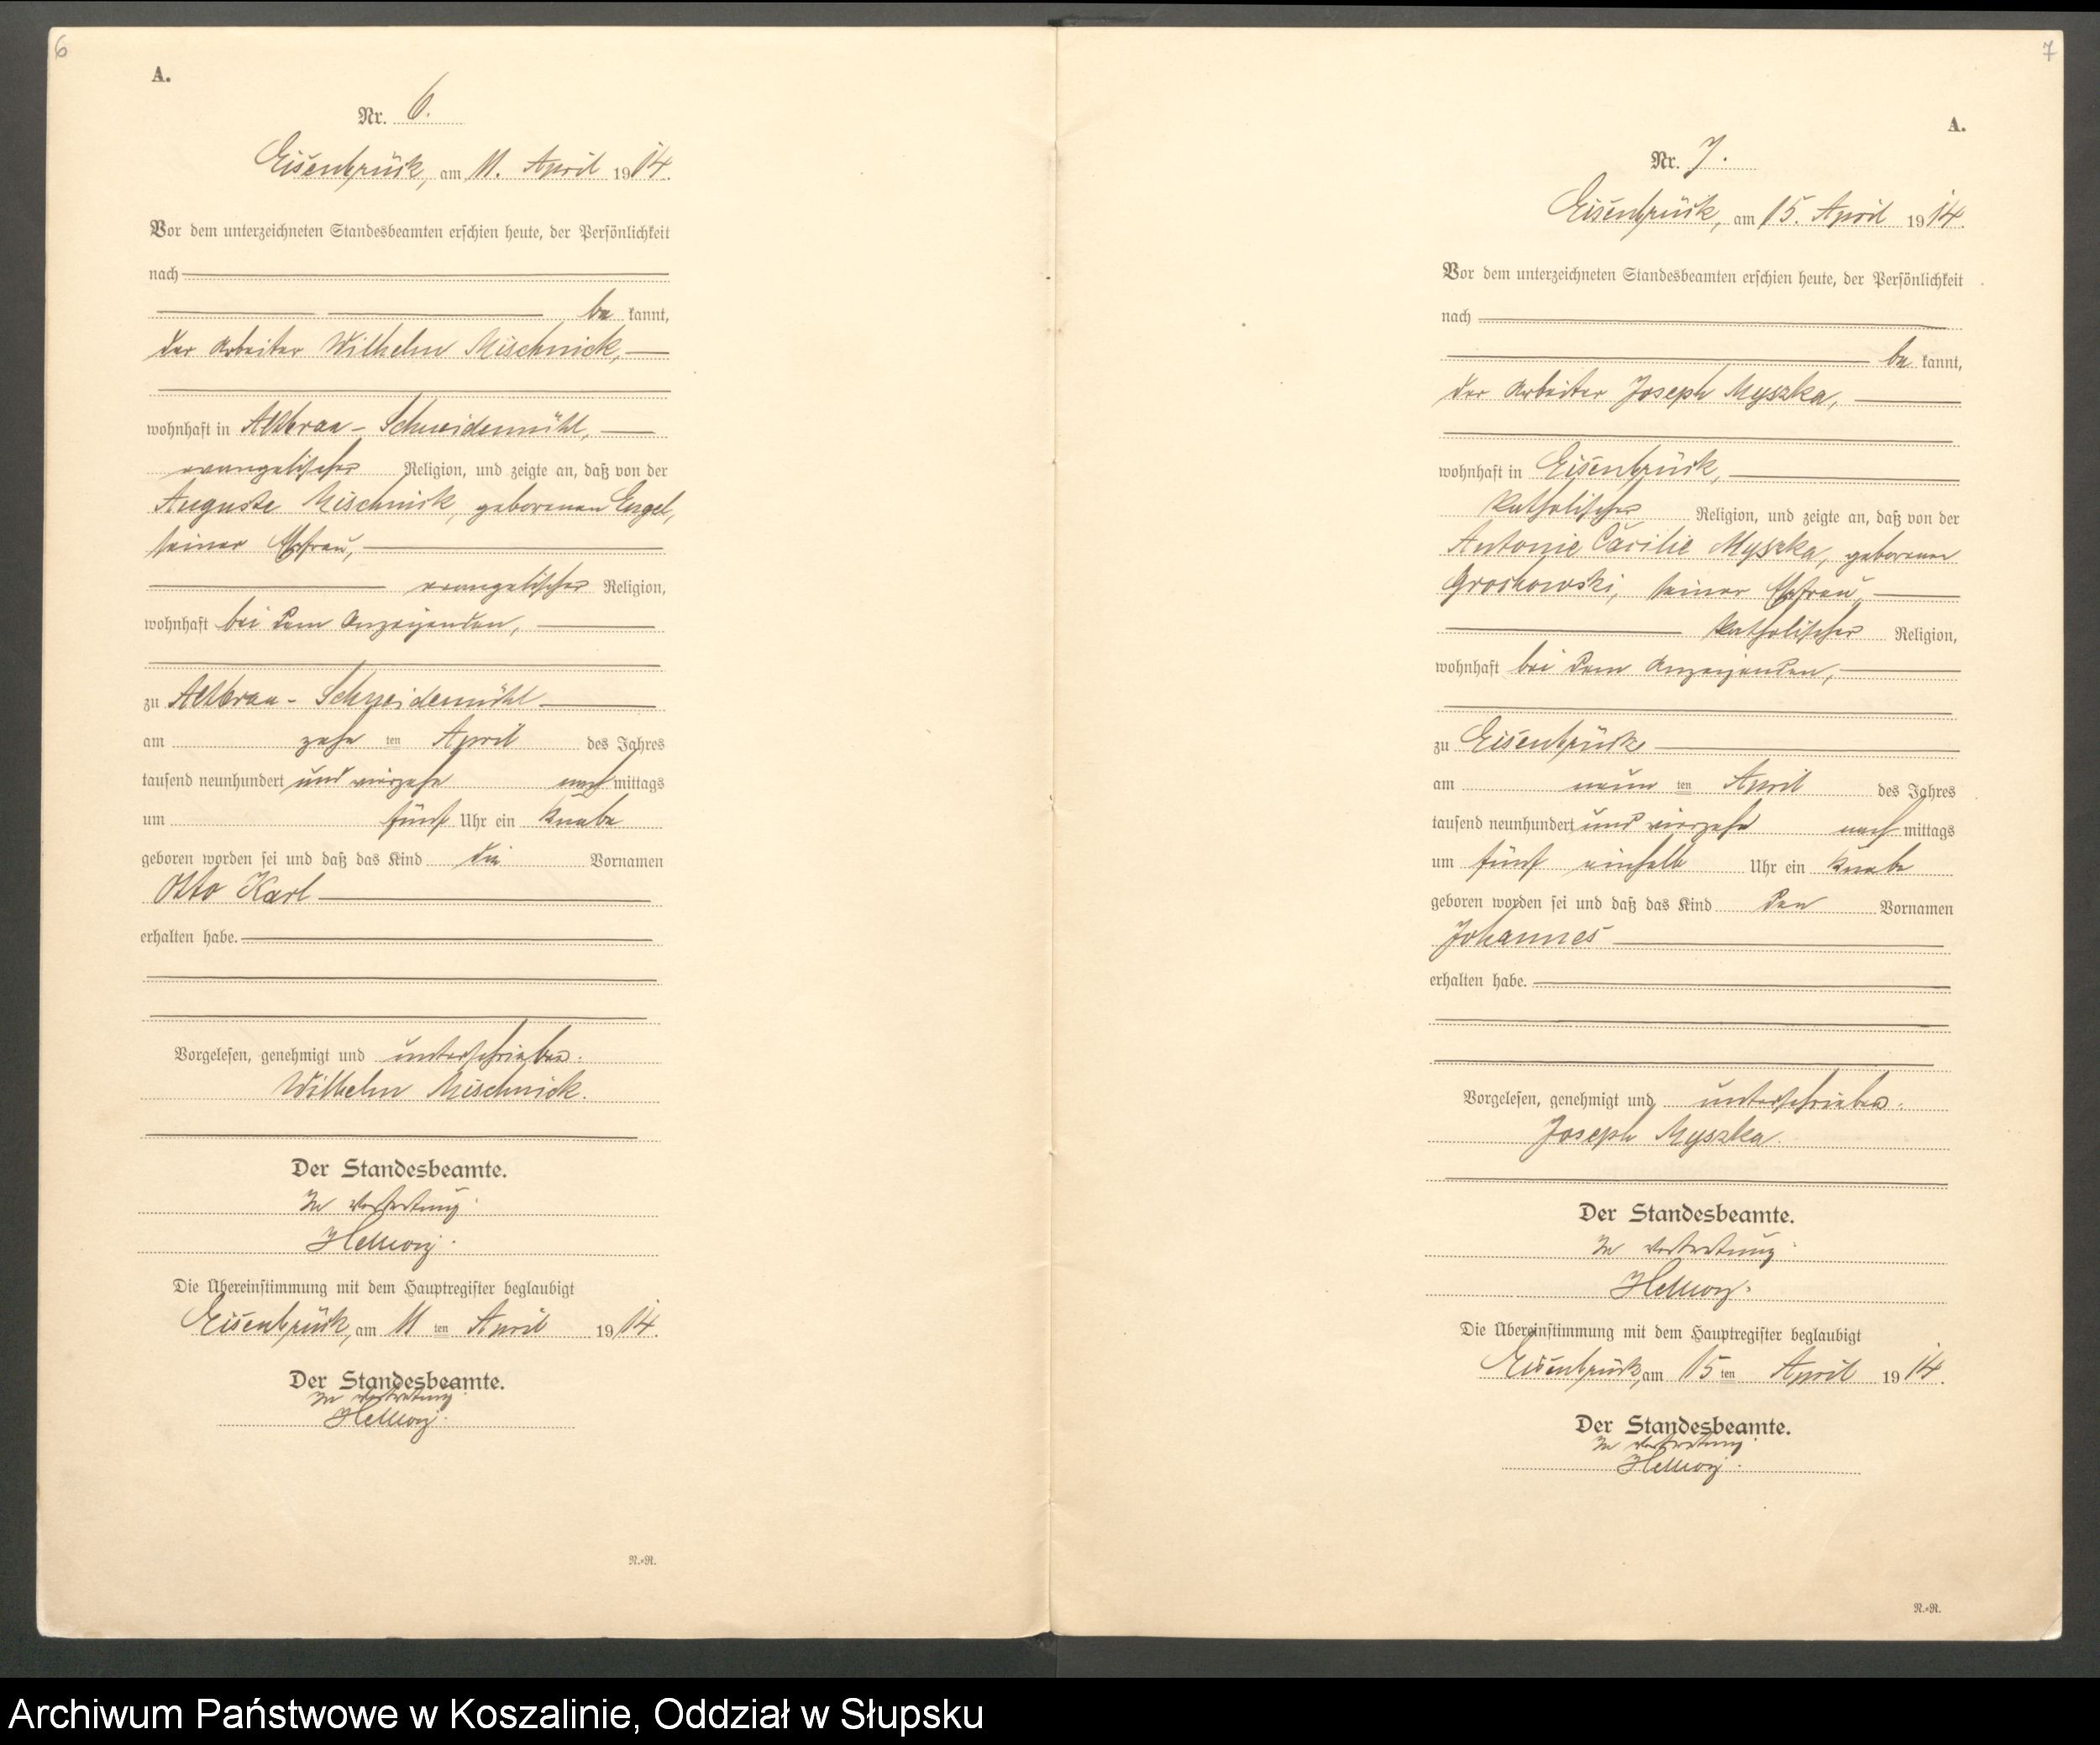 6
A.
Nr. 6.
Eisenbrück, am 11. April 1914.
Vor dem unterzeichneten Standesbeamten erschien heute, der Persönlichkeit
nach
be kannt,
der Arbeiter Wilhelm Mischnick,
wohnhaft in Altbraa - Schneidemühl,
evangelischer Religion, und zeigte an, daß von der
Auguste Mischnick, geborenen Engel,
seiner Ehefrau,
evangelischer Religion,
wohnhaft bei dem Anzeigenden,
zu Altbraa - Schneidemühl
am zehn ten April des Jahres
tausend neunhundert und vierzehn nach mittags
um fünf Uhr ein Knabe
geboren worden sei und daß das Kind die Vornamen
Otto Karl
erhalten habe.
Vorgelesen, genehmigt und unterschrieben.
Wilhelm Mischnick.
Der Standesbeamte.
In Vertretung.
Hellwig.
Die Übereinstimmung mit dem Hauptregister beglaubigt
Eisenbrück, am 11 ten April 1914.
Der Standesbeamte.
In Vertretung.
Hellwig.
R.=R.
7
A.
Nr. 7.
Eisenbrück, am 15. April 1914.
Vor dem unterzeichneten Standesbeamten erschien heute, der Persönlichkeit
nach
be kannt,
der Arbeiter Joseph Myszka,
wohnhaft in Eisenbrück,
katholischer Religion, und zeigte an, daß von der
Antonie Cäcilie Myszka, geborenen
seiner Ehefrau,
katholischer Religion,
wohnhaft bei dem Anzeigenden,
zu Eisenbrück
am neun ten April des Jahres
tausend neunhundert und vierzehn nach mittags
um fünf einhalb Uhr ein Knabe
geboren worden sei und daß das Kind den Vornamen
Johannes
erhalten habe.
Vorgelesen, genehmigt und unterschrieben.
Joseph Myszka.
Der Standesbeamte.
In Vertretung.
Hellwig.
Die Übereinstimmung mit dem Hauptregister beglaubigt
Eisenbrück, am 15 ten April 1914.
Der Standesbeamte.
In Vertretung.
Hellwig.
R.=R.
Archiwum Państwowe w Koszalinie, Oddział w Słupsku